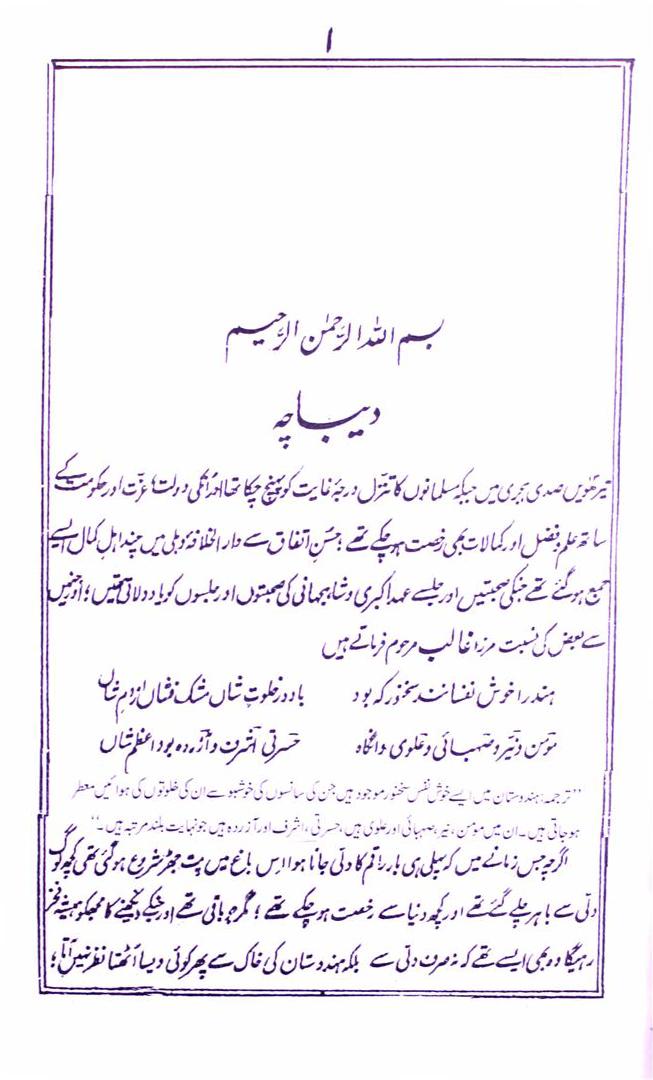 ۱
بسم اللہ الرَّحمٰن الرَّحیم
دیباچہ
تیرھویں صدی ہجری میں جبکہ مسلمانوں کا تنزّل درجۂ غایت کو پہنچ چکا تھا اور اُنکی دولت عزّت اور حکومت کے
ساتھ علم و فضل اور کمالات بھی رخصت ہو چکے تھے؛ حسنِ اتفاق سے دار الخلافۂ دہلی میں چند اہلِ کمال ایسے
جمع ہو گئے تھے جنکی صحبتیں اور جلسے عہدِ اکبری و شاہجہانی کی صحبتوں اور جلسوں کو یاد دولاتی تھیں؛ اُونہیں
سے بعض کی نسبت مرزا غالب مرحوم فرماتے ہیں
ہند را خوش نفسانند سخنور کہ بود باد در خلوتِ شاں مشک فشاں از دمِ شاں
مؤمن و نیّر و صہبائی و علوی وانگاہ حسرتی اشرف و آزردہ بود اعظمِ شاں
’’ترجمہ: ہندوستان میں ایسے خوش نفس سخنور موجود ہیں جن کی سانسوں کی خوشبو سے ان کی خلوتوں کی ہوائیں معطر
ہو جاتی ہیں۔ ان میں مومن، نیر، صہبائی اور علوی ہیں، حسرتی، اشرف اور آزردہ ہیں جو نہایت بلند مرتبہ ہیں۔‘‘
اگرچہ جس زمانے میں کہ پہلی ہی بار راقم کا دلّی جانا ہوا اس باغ میں پت جھڑ شروع ہو گئی تھی کچھ لوگ
دلّی سے باہر چلے گئے تھے اور کچھ دنیا سے رخصت ہو چکے تھے؛ مگر جو باقی تھے اور جنکے دیکھنے کا مجھکو ہمیشہ فخر
رہیگا وہ بھی ایسے تھے کہ نہ صرف دلّی سے بلکہ ہندوستان کی خاک سے پھر کوئی ویسا اُٹھتا نظر نہیں آتا؛